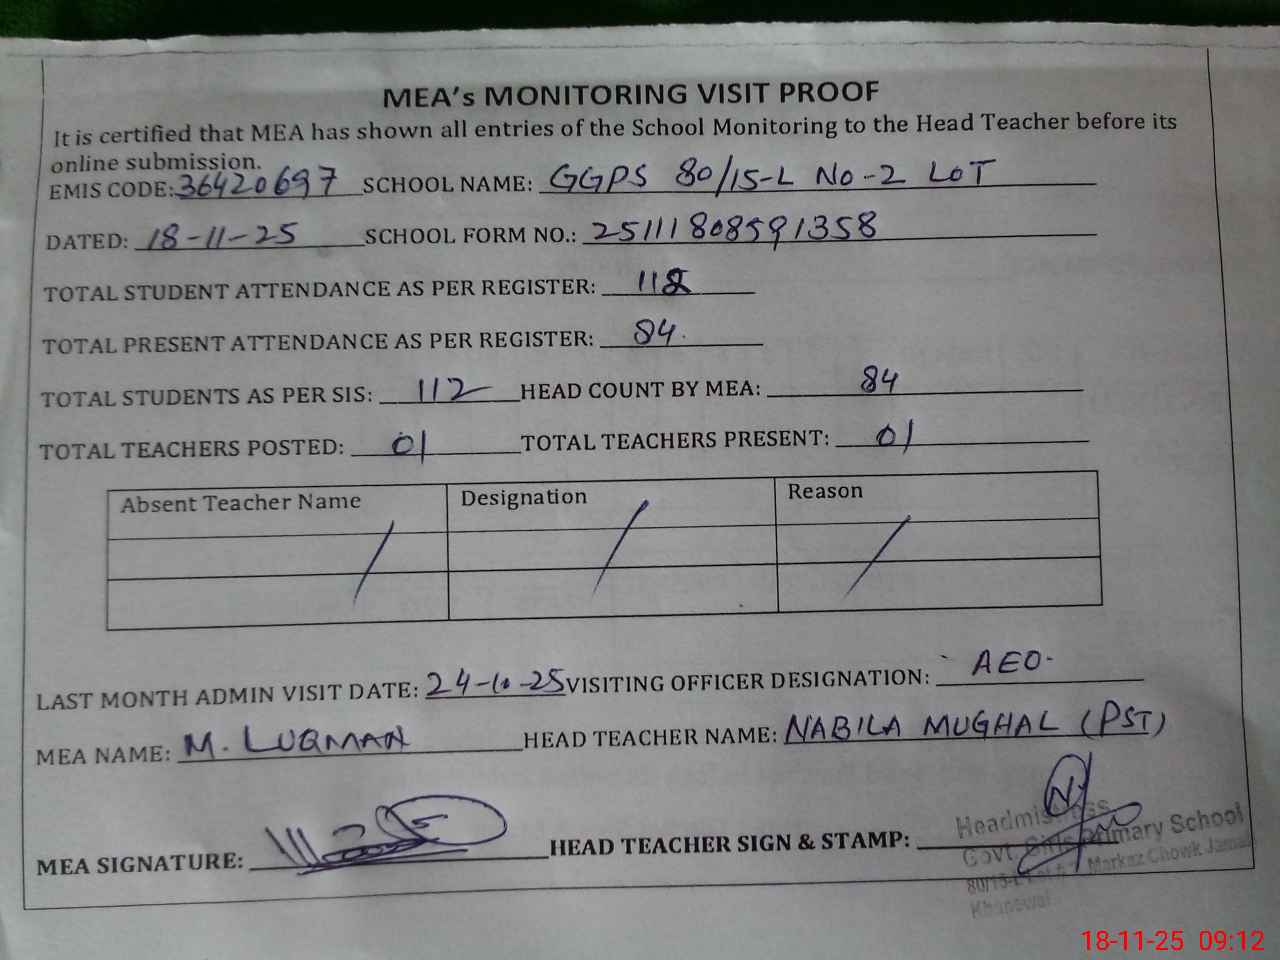 MEA's MONITORING VISIT PROOF
It is certified that MEA has shown all entries of the School Monitoring to the Head Teacher before its
online submission.
EMIS CODE: 36420697 SCHOOL NAME: GGPS 80/15-L No-2 LOT
DATED: 18-11-25 SCHOOL FORM NO.: 25111808591358
TOTAL STUDENT ATTENDANCE AS PER REGISTER: 112
TOTAL PRESENT ATTENDANCE AS PER REGISTER: 84.
TOTAL STUDENTS AS PER SIS: 112 HEAD COUNT BY MEA: 84
TOTAL TEACHERS POSTED: 01 TOTAL TEACHERS PRESENT: 01
Absent Teacher Name Designation Reason
LAST MONTH ADMIN VISIT DATE: 24-10-25 VISITING OFFICER DESIGNATION: AEO.
MEA NAME: M. LUQMAN HEAD TEACHER NAME: NABILA MUGHAL (PST)
MEA SIGNATURE: HEAD TEACHER SIGN & STAMP:
Headmistress
Govt. Girls Primary School
80/15-L Markaz Chowk Jamal
Khanewal
18-11-25 09:12